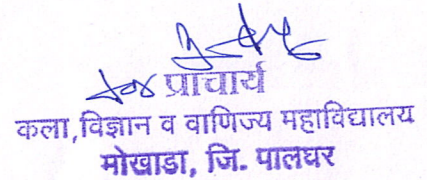 for प्राचार्य
कला,विज्ञान व वाणिज्य महाविद्यालय
मोखाडा, जि. पालघर